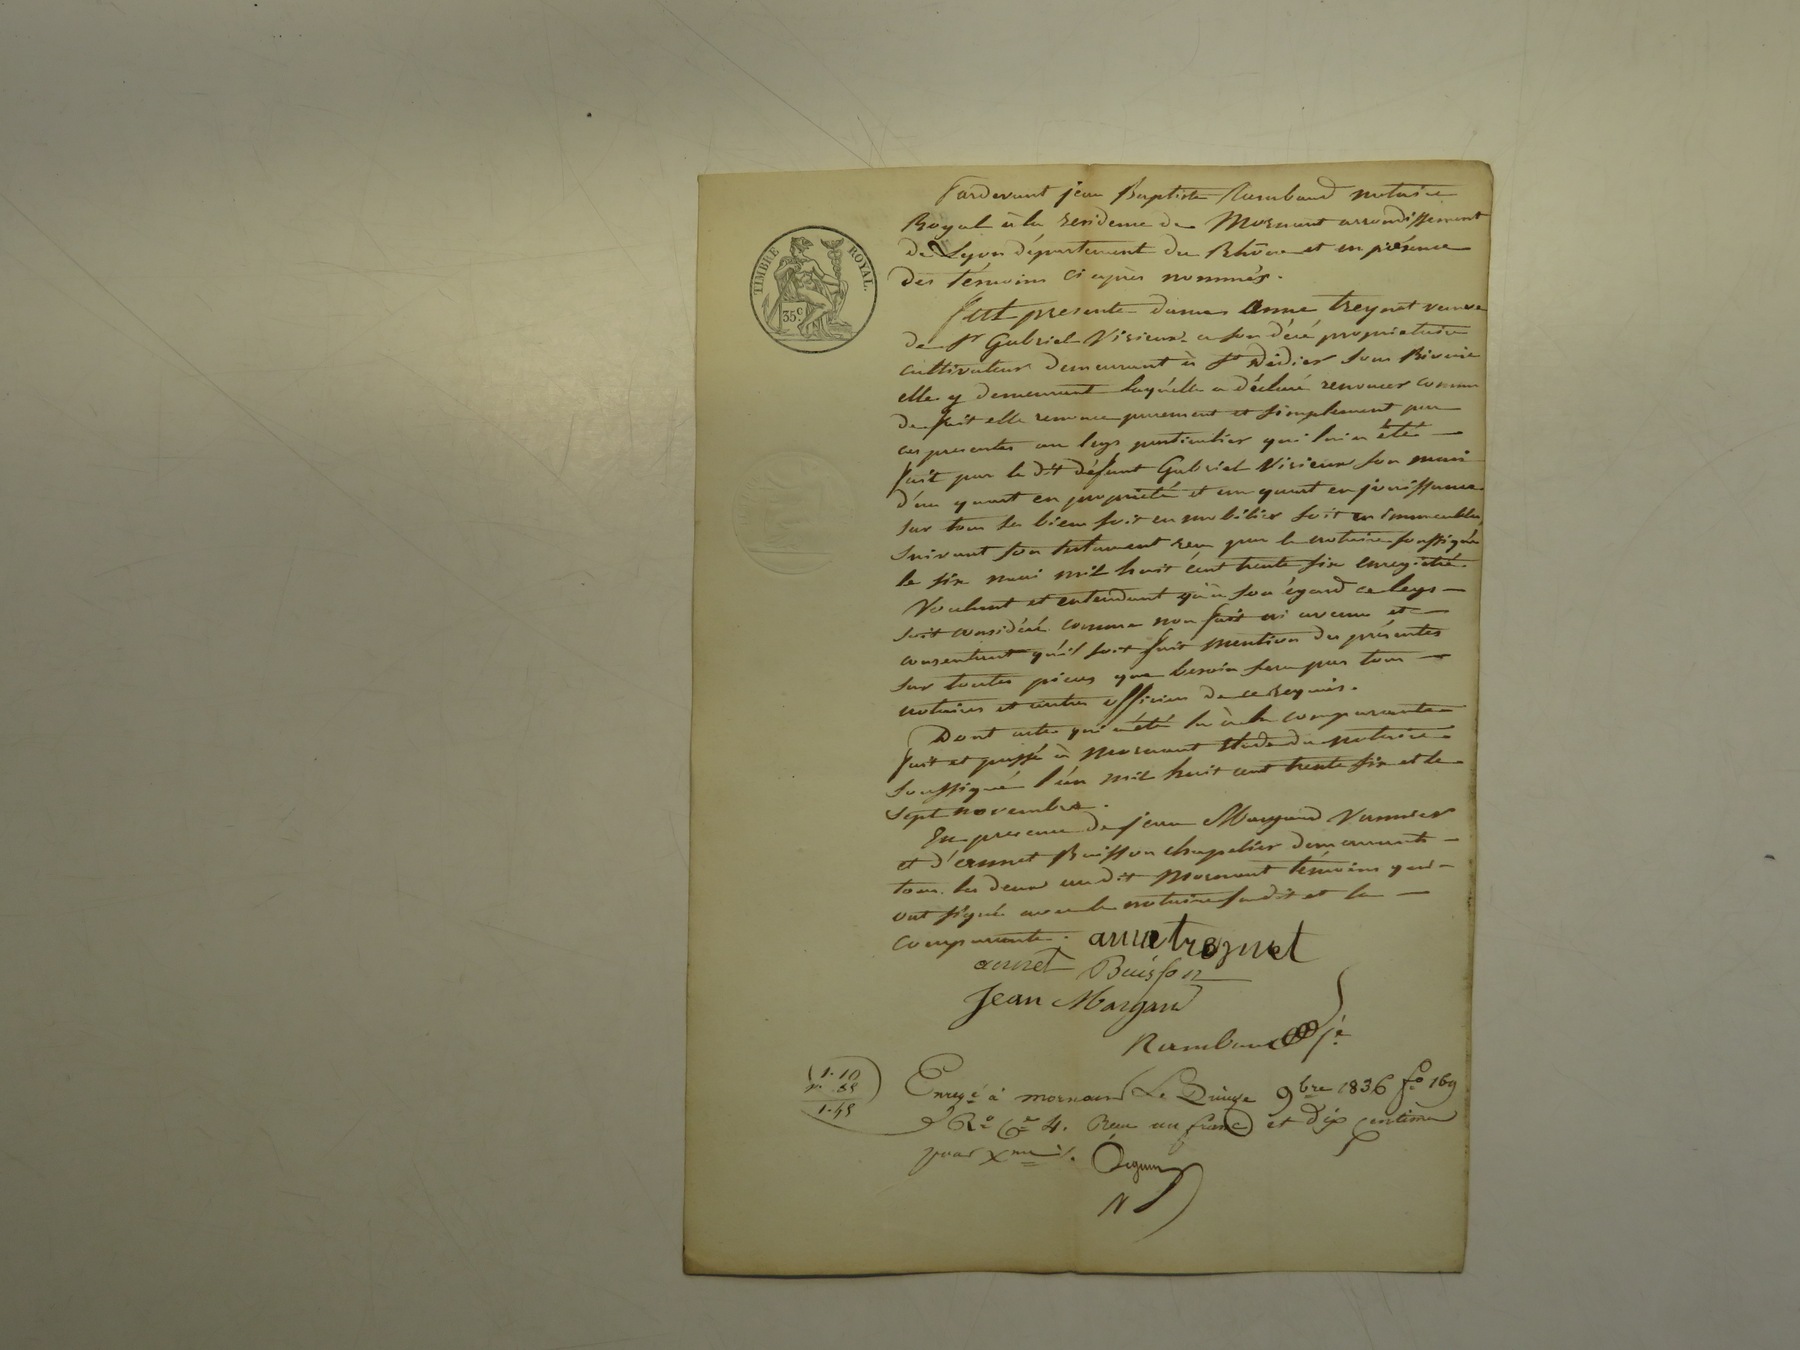 TIMBRE ROYAL.
35c.
Pardevant jean Baptiste Rambaud notaire
Royal à la residence de Mornant arrondissement
de Lyon département du Rhône et en présence
des témoins ci après nommés.
Fut presente dame anne treynet veuve
de Sr Gabriel Virieux a son décé propriétaire
cultivateur demeurant à St Didier sous Riverie
elle y demeurant laquelle a déclaré renoncer comme
de fait elle renonce purement et simplement par
ces presentes au legs particulier qui lui a été
fait par le dit défunt Gabriel Virieux son mari
d'un quart en propriété et un quart en jouissance
sur tous ses biens soit en mobilier soit en immeubles
suivant son testament reçu par le notaire soussigné
le six mai mil huit cent trente six enregistré.
Voulant et entendant qu'à son égard ce legs
soit considéré comme non fait ni avenu et
consentant qu'il soit fait mention des présentes
sur toutes pièces que besoin sera par tous
notaires et autres officiers de ce requis.
Dont acte qui a été lu à la comparante
fait et passé à Mornant Etude du notaire
soussigné l'an mil huit cent trente six et le
sept novembre.
En presence de jean Margand Vannier
et d'annet Buisson chapelier demeurants
tous les deux au dit Mornant témoins qui
ont signé avec le notaire susdit et la
comparante. anne treynet
annet Buisson
Jean Margand
Rambaud
1.10
11
Enregé à mornant Le Quinze 9bre 1836 fo 169
Ro Ce 4. Reçu un franc et dix centimes
pour Xme